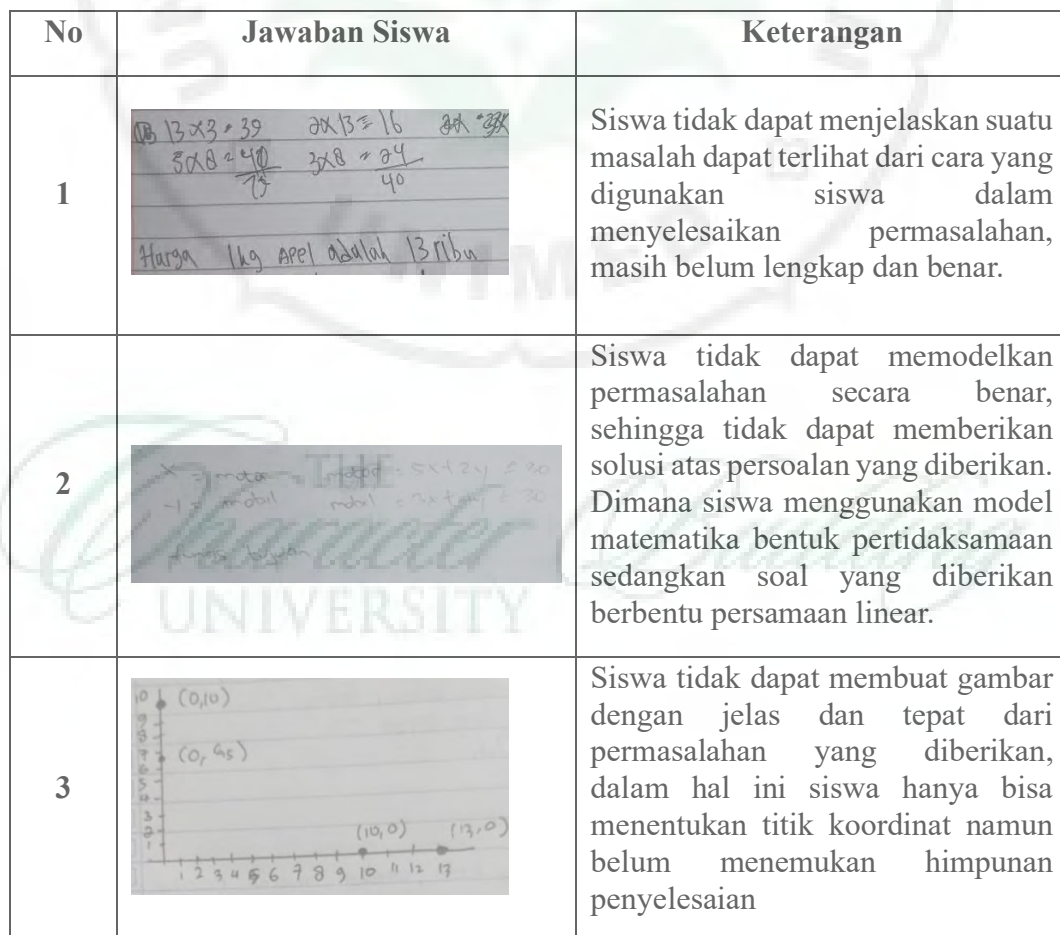 No
Jawaban Siswa
Keterangan
1
13x3 = 39 2x13 = 16
5x8 = 40 3x8 = 24
40
Harga 1kg Apel adalah 13 ribu
Siswa tidak dapat menjelaskan suatu
masalah dapat terlihat dari cara yang
digunakan siswa dalam
menyelesaikan permasalahan,
masih belum lengkap dan benar.
2
mobil
Siswa tidak dapat memodelkan
permasalahan secara benar,
sehingga tidak dapat memberikan
solusi atas persoalan yang diberikan.
Dimana siswa menggunakan model
matematika bentuk pertidaksamaan
sedangkan soal yang diberikan
berbentu persamaan linear.
3
10
(0,10)
9
8
7
6
5
4
3
2
1
(10,0) (13,0)
1 2 3 4 5 6 7 8 9 10 11 12 13
Siswa tidak dapat membuat gambar
dengan jelas dan tepat dari
permasalahan yang diberikan,
dalam hal ini siswa hanya bisa
menentukan titik koordinat namun
belum menemukan himpunan
penyelesaian
UNIMED
THE
Character Building
UNIVERSITY